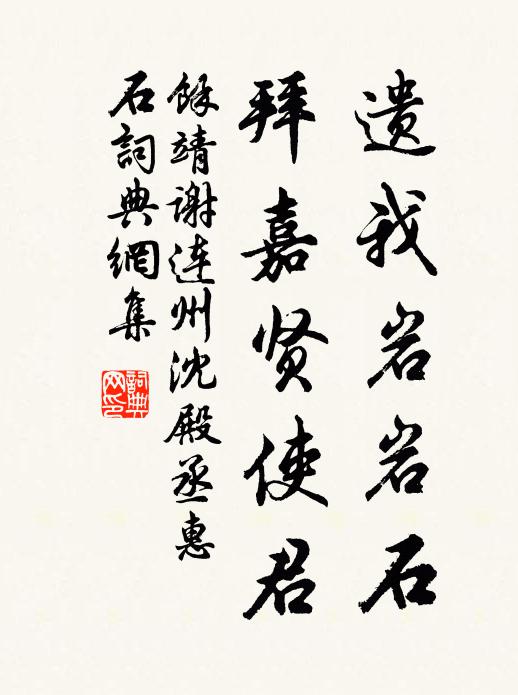 遗我岩岩石
拜嘉贤使君
馀靖谢连州沈殿丞惠
石詞典網集
詞典
网印